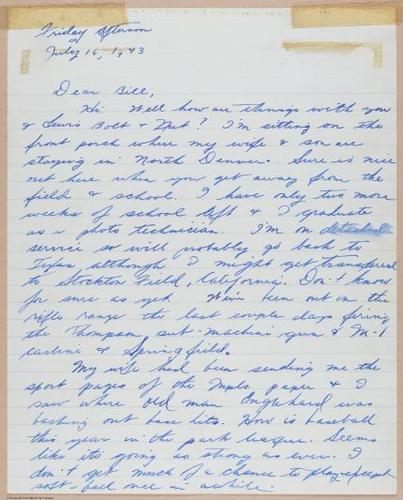 Friday Afternoon
July 16, 1943
Dear Bill,
Hi. Well how are things with you
& Lewis Bolt & Nut? I'm sitting on the
front porch where my wife & son are
staying in North Denver. Sure is nice
out here when you get away from the
field & school. I have only two more
weeks of school left & I graduate
as a photo technician. I'm on detached
service so will probably go back to
although I might get transferred
to Stockton Field, California. Don't know
for sure as yet. We've been out on the
rifle range the last couple days firing
the Thompson sub-machine gun & M-1
carbine & Springfield.
My wife had been sending me the
sport pages of the Mpls. paper & I
saw where old man Englehard was
bashing out base hits. How is baseball
this year in the park league. Seems
like its going as strong as ever. I
don't get much of a chance to play except
soft-ball once in awhile.